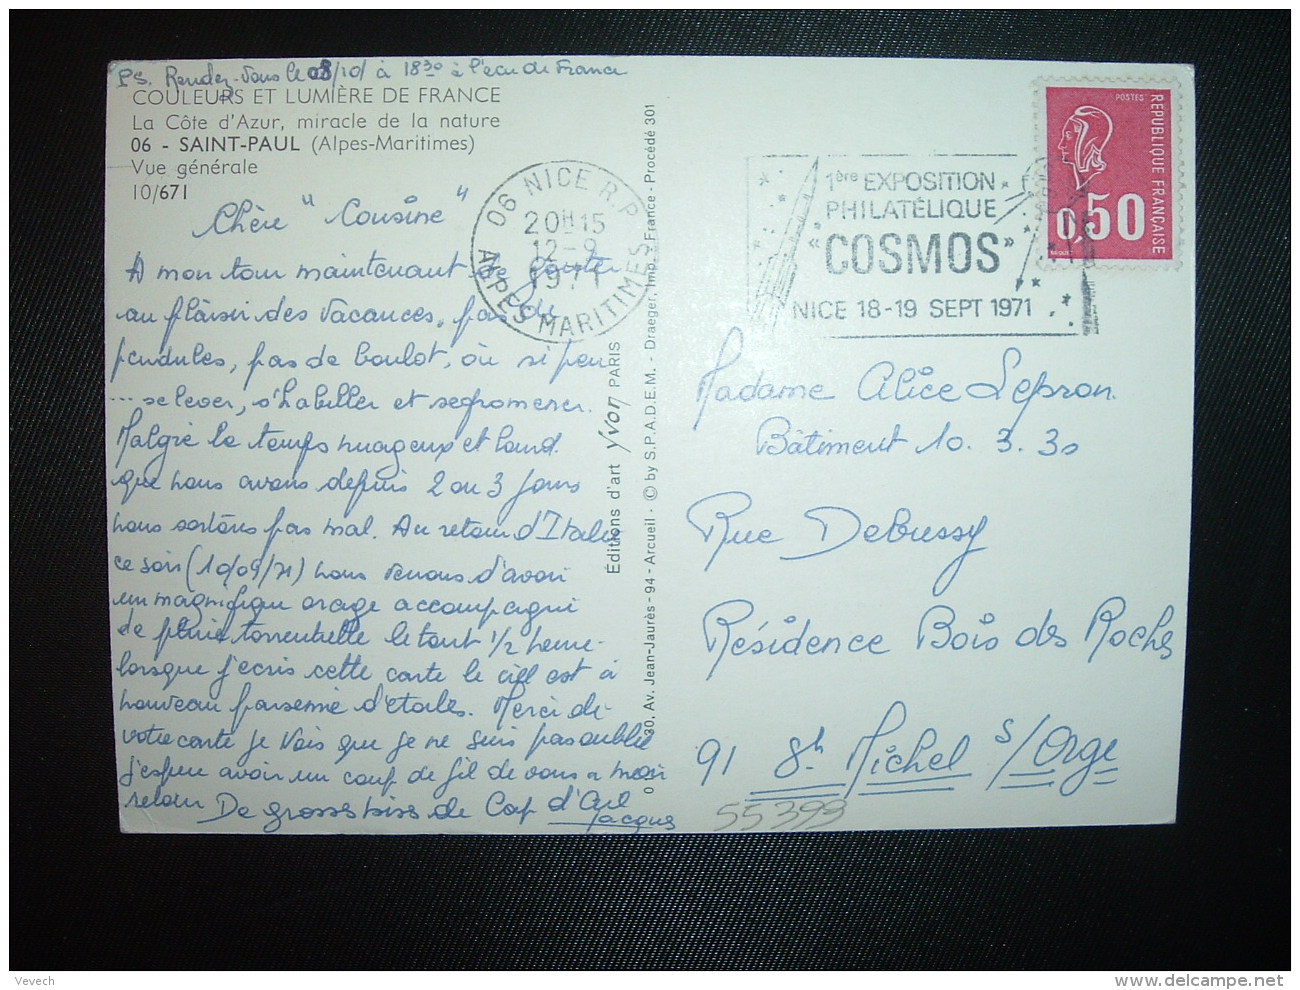 PS. Rendez-vous le 08/10/ à 18 30 à l'écu de France
COULEURS ET LUMIÈRE DE FRANCE
La Côte d'Azur, miracle de la nature
06 - SAINT-PAUL (Alpes-Maritimes)
Vue générale
10/671
Chère "Cousine"
A mon tour maintenant de goûter
au plaisir des vacances, pas de
pendules, pas de boulot, où si peu
... se lever, s'habiller et se promener.
Malgré le temps nuageux et lourd
que nous avons depuis 2 ou 3 jours
nous sortons pas mal. Au retour d'Italie
ce soir (10/09/71) nous venons d'avoir
un magnifique orage accompagné
de pluie torrentielle le tout 1/2 heure
lorsque j'écris cette carte le ciel est à
nouveau parsemé d'étoiles. Merci de
votre carte je vois que je ne suis pas oublié
j'espère avoir un coup de fil de vous a mon
retour De grosses bises de Cap d'Ail
Jacques
06 NICE R.P.
20H15
12-9
1971
ALPES MARITIMES
1ère EXPOSITION
PHILATÉLIQUE
"COSMOS"
NICE 18-19 SEPT 1971
POSTES
REPUBLIQUE FRANÇAISE
0,50
BEQUET
Editions d'art Yvon PARIS
30, Av. Jean-Jaurès - 94 - Arcueil - © by S.P.A.D.E.M. - Draeger, Imp. France - Procédé 301
Madame Alice Lepron
Bâtiment 10. 3. 30
Rue Debussy
Résidence Bois des Roches
91 St Michel s/Orge
55399
Vevech
www.delcampe.net